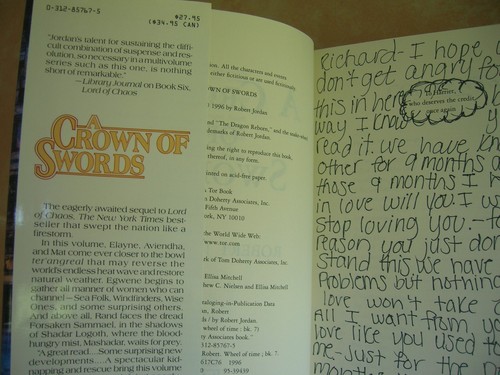 0-312-85767-5
$27.95
($34.95 CAN)
"Jordan's talent for sustaining the diffi-
cult combination of suspense and res-
olution, so necessary in a multivolume
series such as this one, is nothing
short of remarkable."
—Library Journal on Book Six,
Lord of Chaos
A
CROWN OF
SWORDS
The eagerly awaited sequel to Lord
of Chaos, The New York Times best-
seller that swept the nation like a
firestorm.
In this volume, Elayne, Aviendha,
and Mat come ever closer to the bowl
ter'angreal that may reverse the
worlds endless heat wave and restore
natural weather. Egwene begins to
gather all manner of women who can
channel—Sea Folk, Windfinders, Wise
Ones, and some surprising others.
And above all, Rand faces the dread
Forsaken Sammael, in the shadows
of Shadar Logoth, where the blood-
hungry mist, Mashadar, waits for prey.
"A great read... Some surprising new
developments.... A spectacular kid-
napping and rescue bring this volume
on. All the characters and events
either fictitious or are used fictitiously.
OWN OF SWORDS
1996 by Robert Jordan
nd "The Dragon Reborn," and the snake-wheel
demarks of Robert Jordan.
ing the right to reproduce this book,
thereof, in any form.
inted on acid-free paper.
Tor Book
Doherty Associates, Inc.
Fifth Avenue
rk, NY 10010
the World Wide Web:
www.tor.com
rk of Tom Doherty Associates, Inc.
Ellisa Mitchell
hew C. Nielsen and Ellisa Mitchell
taloging-in-Publication Data
an, Robert
ds / by Robert Jordan.
wheel of time ; bk. 7)
ty Associates book."
312-85767-5
Robert. Wheel of time ; bk. 7.
617C76 1996
95-39459
Richard- I hope
don't get angry fo
this in her
way I know
read it. we have kn
other for 9 months
those 9 months I
in love will you I us
stop loving you.
reason you just don
stand this we have
Problems but nothin
love won't take
All I want from y
love like you used t
me-just for the
who deserves the credit
once again